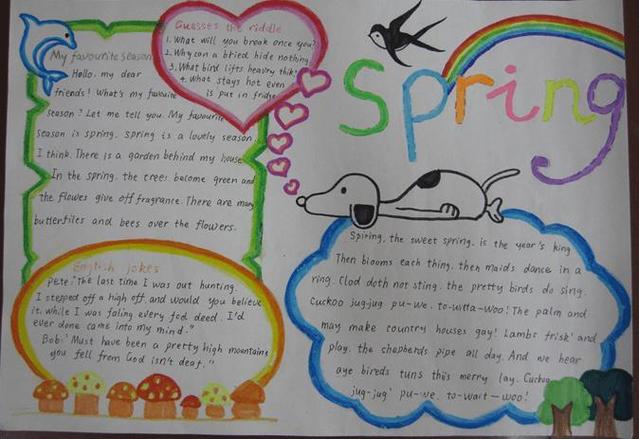 Guesses the riddle
1. What will you break once you?
2. Why can a bried hide nothing
3. What bird lifts heavry
4. What stays hot even
is put in fridge
Spring
My favourite season
Hello, my dear
friends! What's my favourite
season? Let me tell you. My favourite
season is spring. spring is a lovely season.
I think. There is a garden behind my house
In the spring. the trees become green and
the flowes give off fragrance. There are many
butterfiles and bees over the flowers.
English jokes
Pete: "The last time I was out hunting.
I stepped off a high off and would you believe
it. while I was faling every fod deed. I'd
ever done came into my mind."
Bob: "Must have been a pretty high mountaine
you fell from God isn't deaf."
Spiring, the sweet spring. is the year's king
Then blooms each thing. then maids dance in a
ring. Clod doth not sting. the pretty birds do sing.
Cuckoo jug-jug. pu-we. to-witta-woo! The palm and
may make country houses gay! Lambs frisk' and
play. the shepherds pipe all day. And we hear
aye bireds tuns this merry lay. Cuckoo
jug-jug' pu-we. to-wait-woo!